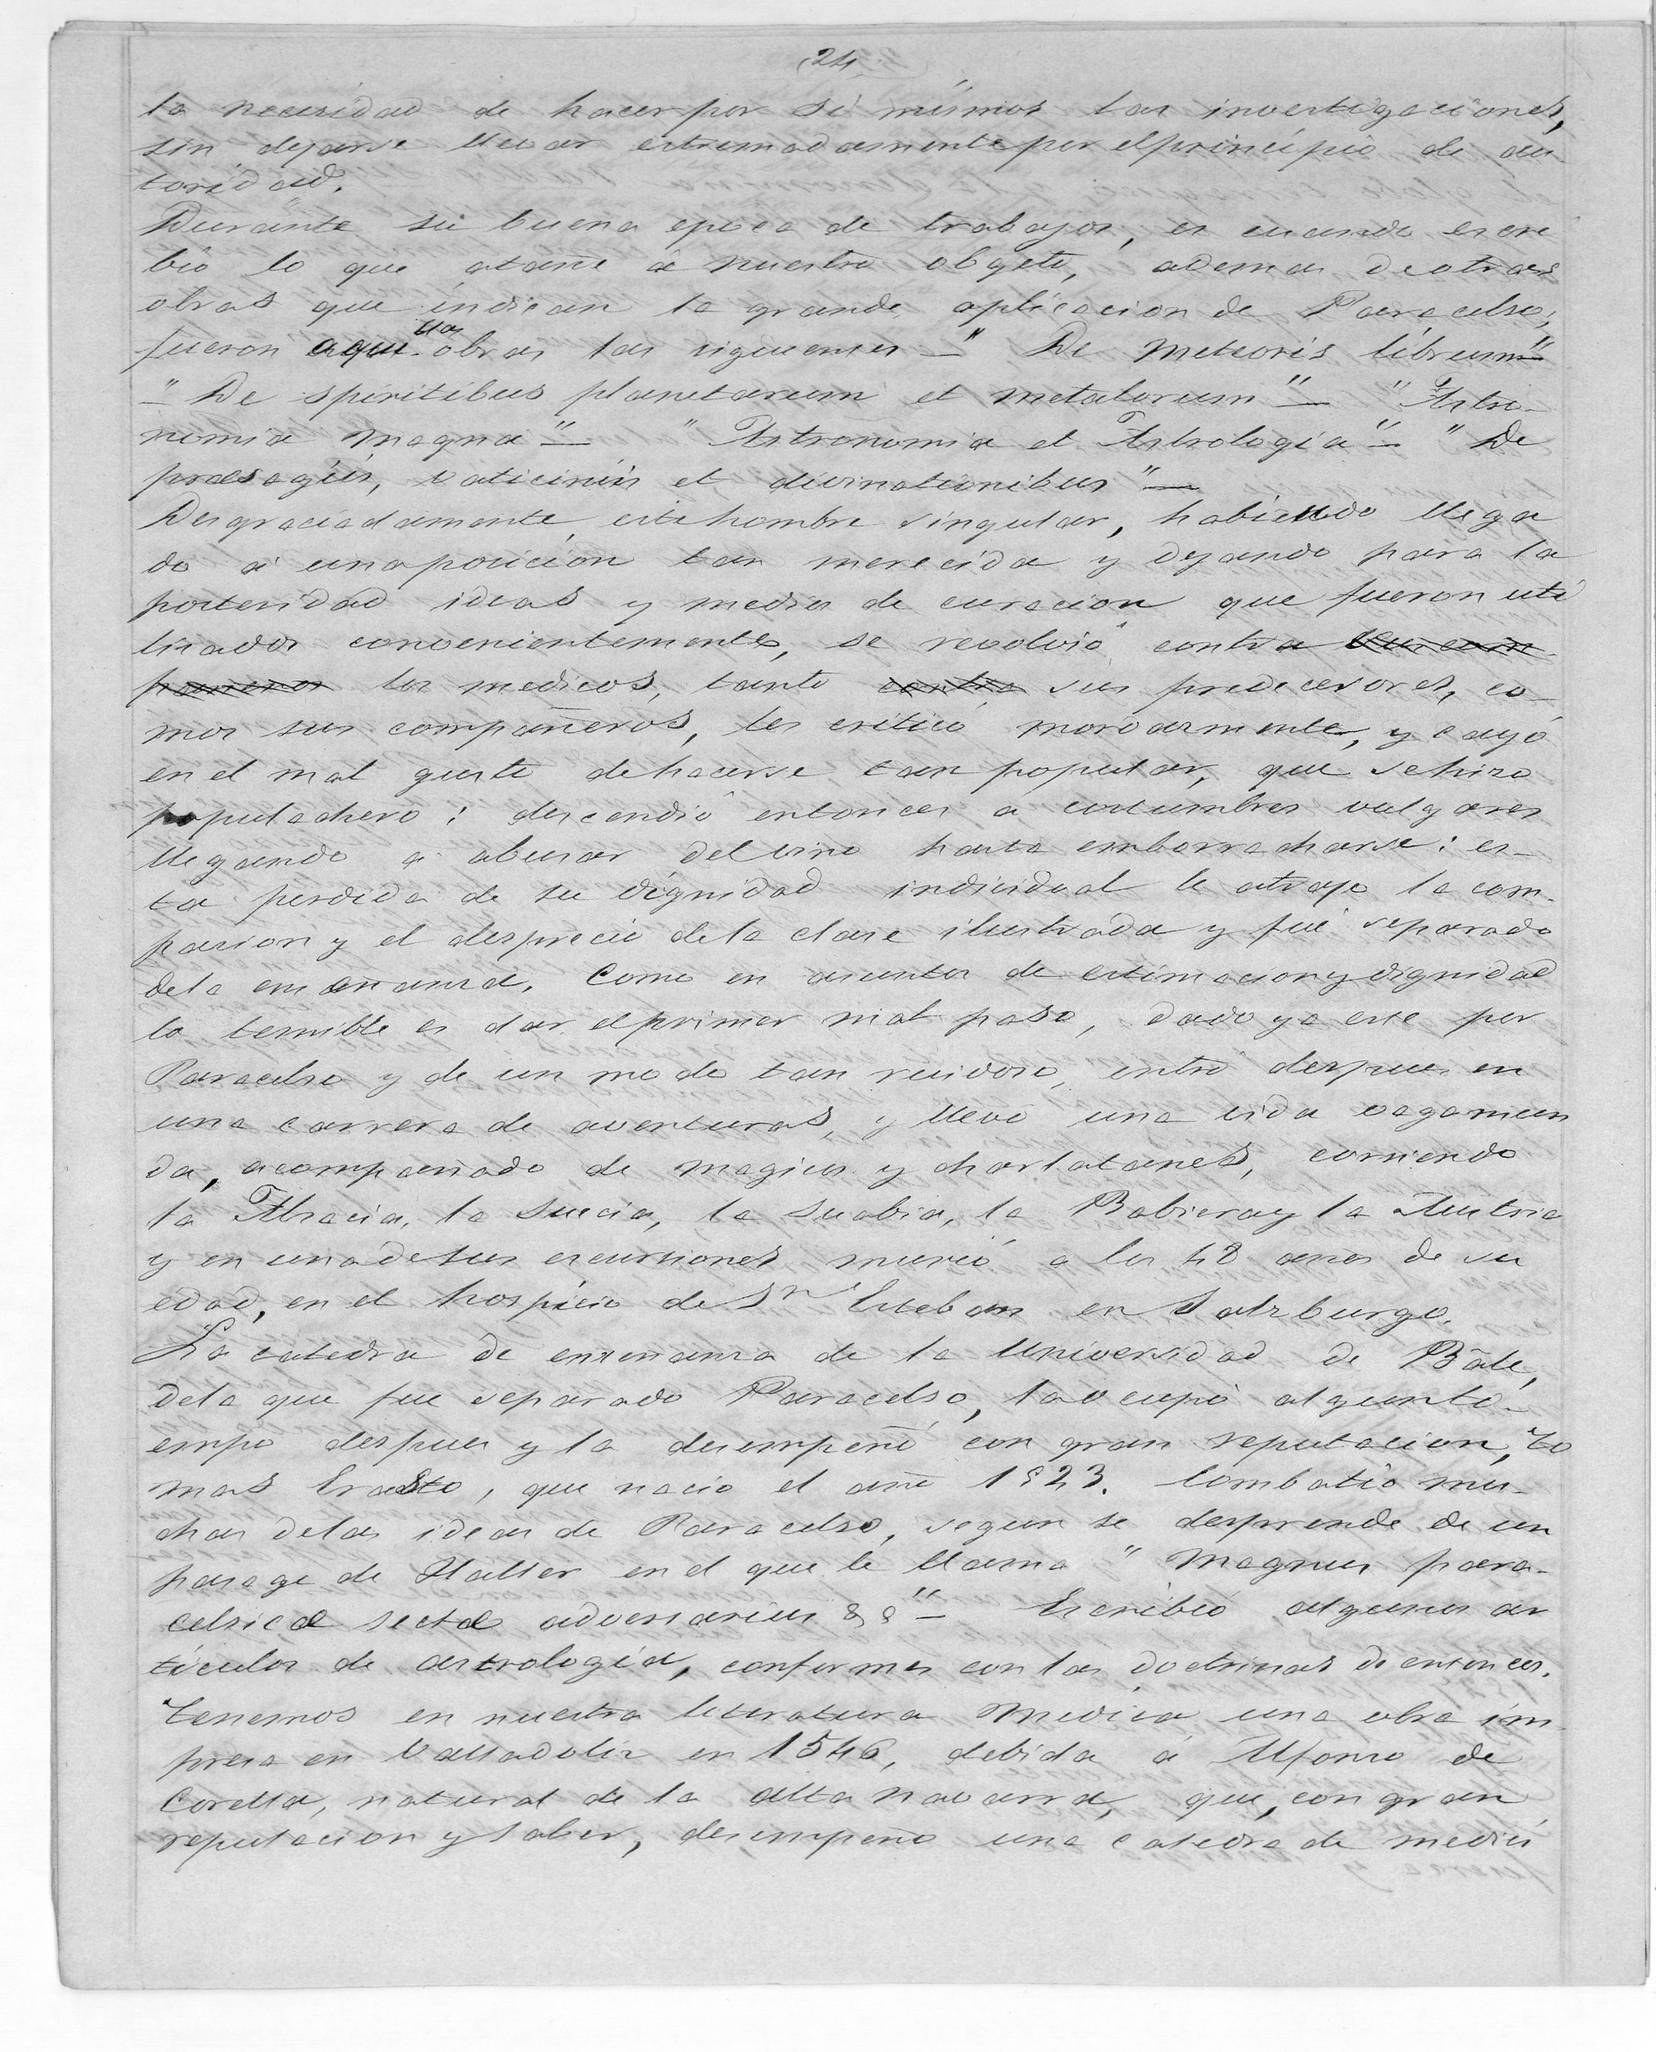 24
la necesidad de hacer por sí mismos las investigaciones,
sin dejarse llevar estremadamente por el principio de au
toridad.
Durante su buena epoca de trabajos, es cuando escri
bio lo que atañe a nuestro objeto, ademas de otras
obras que indican la grande aplicacion de Paracelso;
fueron aquellas obras las siguientes — " De Meteoris librum" —
" De spiritibus planetarum et metalorum" — " Astro-
nomia magna" — " Astronomia et Astrologia" — " De
praesagiis, vaticiniis et divinationibus" —
Desgraciadamente, este hombre singular, habiendo llega
do á una posicion tan merecida y dejando para la
posteridad ideas y medios de curacion que fueron uti
lizados convenientemente, se revolvió contra sus com-
pañeros los medicos, tanto contra sus predecesores, co-
mos sus compañeros, les criticó mordazmente, y cayó
en el mal gusto de hacerse tan popular, que se hizo
populachero: descendió entonces a costumbres vulgares
llegando a abusar del vino hasta emborracharse: es-
ta perdida de su dignidad individual le atrajo la com-
pasion y el desprecio de la clase ilustrada y fué separado
de la enseñanza. Como en asuntos de estimacion y dignidad
lo temible es dar el primer mal paso, dado ya este por
Paracelso y de un modo tan ruidoso, entró despues en
una carrera de aventuras, y llevó una vida vagamun
da, acompañado de magicos y charlatanes, corriendo
la Alsacia, la Suecia, la Suabia, la Babiera y la Austria
y en una de sus escursiones murió a los 48 años de su
edad, en el hospicio de Sn Esteban en Salzburgo.
La catedra de enseñanza de la Universidad de Bâle,
de la que fue separado Paracelso, la ocupó algun ti-
empo despues y la desempeñó con gran reputacion, To
mas Erasto, que nacio el año 1523. Combatió mu-
chas de las ideas de Paracelso, segun se desprende de un
pasage de Haller en el que le llama " Magnus para-
celsicae sectae adversarius &&" — Escribió algunos ar
tículos de astrologia, conformes con las doctrinas de entonces.
Tenemos en nuestra literatura Medica una obra im
presa en Valladoliz en 1546, debida á Alfonso de
Corella, natural de la alta navarra, que, con gran
reputacion y saber, desempeño una catedra de medici